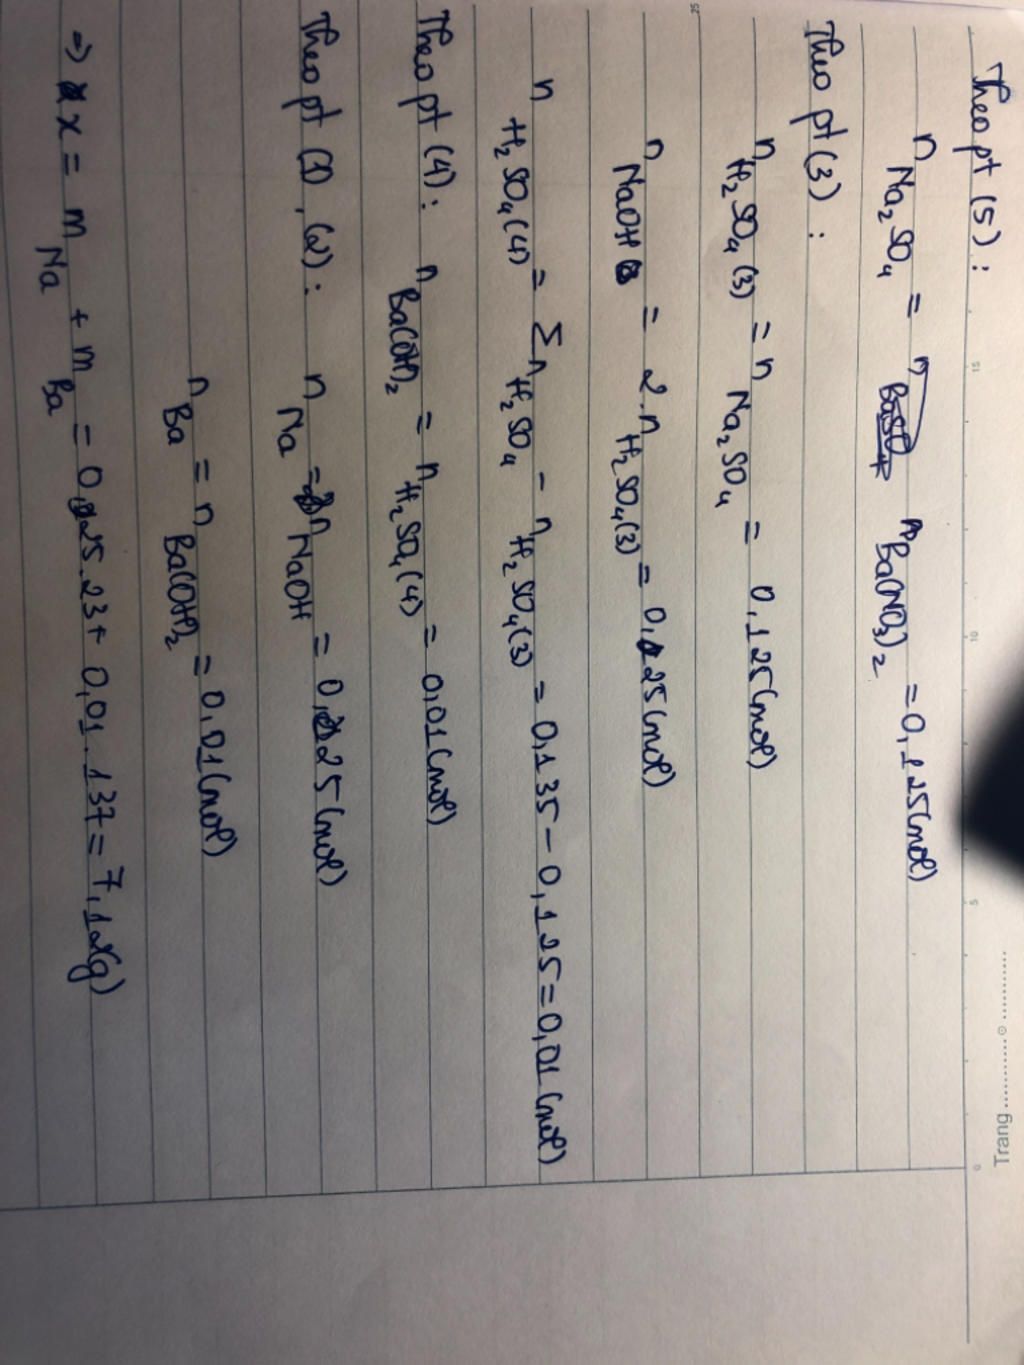 Trang
Theo pt (5) :
n Na2SO4 = n Ba(NO3)2 = 0,125(mol)
Theo pt (3) :
n H2SO4 (3) = n Na2SO4 = 0,125(mol)
n NaOH = 2.n H2SO4(3) = 0,25(mol)
n H2SO4(4) = Σn H2SO4 - n H2SO4(3) = 0,135 - 0,125 = 0,01(mol)
Theo pt (4) : n Ba(OH)2 = n H2SO4(4) = 0,01(mol)
Theo pt (1), (2) : n Na = n NaOH = 0,25(mol)
n Ba = n Ba(OH)2 = 0,01(mol)
=> x = m Na + m Ba = 0,25.23 + 0,01.137 = 7,12(g)